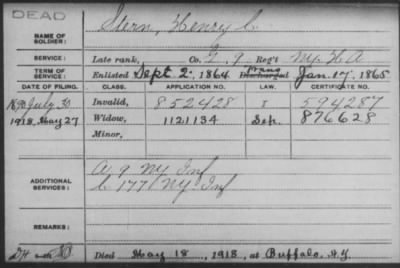 DEAD
NAME OF SOLDIER: Stern, Henry C.
SERVICE: Late rank, Co. I, 9 Reg't N.Y. H A
TERM OF SERVICE: Enlisted Sept 2, 1864 Trans Discharged Jan. 17, 1865
DATE OF FILING. CLASS. APPLICATION NO. LAW. CERTIFICATE NO.
1890 July 30 Invalid, 852428 594287
1918, May 27 Widow, 1121134 Sep. 876628
Minor,
ADDITIONAL SERVICES: A 9 NY Inf
C 177 NY Inf
REMARKS:
Died May 18, 1918, at Buffalo, N.Y.